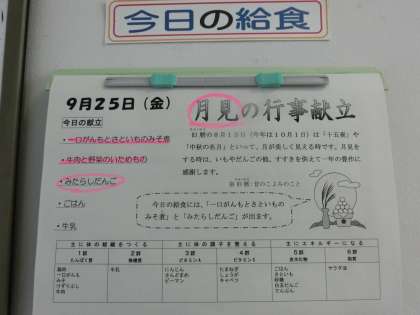 今日の給食
9月25日（金）
月見の行事献立
今日の献立
・一口がんもとさといものみそ煮
・牛肉と野菜のいためもの
・みたらしだんご
・ごはん
・牛乳
旧暦の8月15日（今年は10月1日）は「十五夜」や
「中秋の名月」といって、月が美しく見える時です。月見を
する時は、いもやだんごの他、すすきを供えて一年の豊作に
感謝します。
今日の給食には、「一口がんもとさといもの
みそ煮」と「みたらしだんご」が出ます。
主に体の組織をつくる 主に体の調子を整える 主にエネルギーになる
1群 2群 3群 4群 5群 6群
たんぱく質 無機質 ビタミンA ビタミンC 炭水化物 脂質
一口がんも
みそ
牛肉
牛乳
にんじん
さやいんげん
ピーマン
たまねぎ
しょうが
キャベツ
ごはん
さといも
砂糖
白玉だんご
でんぷん
サラダ油